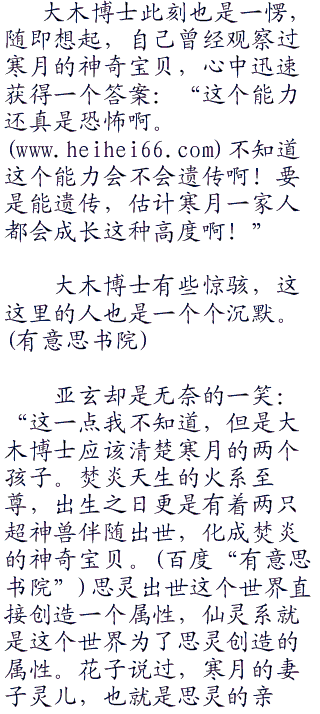 大木博士此刻也是一愣，
随即想起，自己曾经观察过
寒月的神奇宝贝，心中迅速
获得一个答案：“这个能力
还真是恐怖啊。
(www.heihei66.com)不知道
这个能力会不会遗传啊！要
是能遗传，估计寒月一家人
都会成长这种高度啊！”
大木博士有些惊骇，这
这里的人也是一个个沉默。
(有意思书院)
亚玄却是无奈的一笑：
“这一点我不知道，但是大
木博士应该清楚寒月的两个
孩子。焚炎天生的火系至
尊，出生之日更是有着两只
超神兽伴随出世，化成焚炎
的神奇宝贝。(百度“有意思
书院”)思灵出世这个世界直
接创造一个属性，仙灵系就
是这个世界为了思灵创造的
属性。花子说过，寒月的妻
子灵儿，也就是思灵的亲